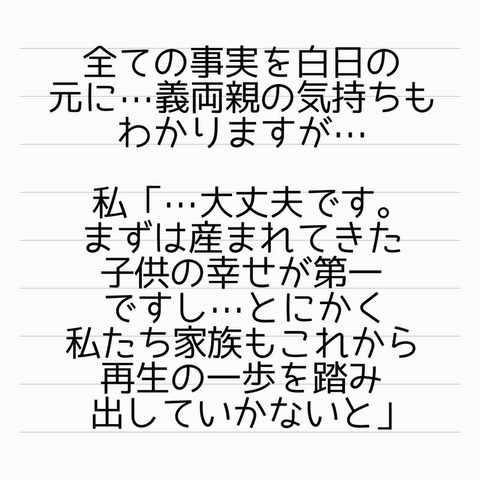 全ての事実を白日の
元に…義両親の気持ちも
わかりますが…
私「…大丈夫です。
まずは産まれてきた
子供の幸せが第一
ですし…とにかく
私たち家族もこれから
再生の一歩を踏み
出していかないと」